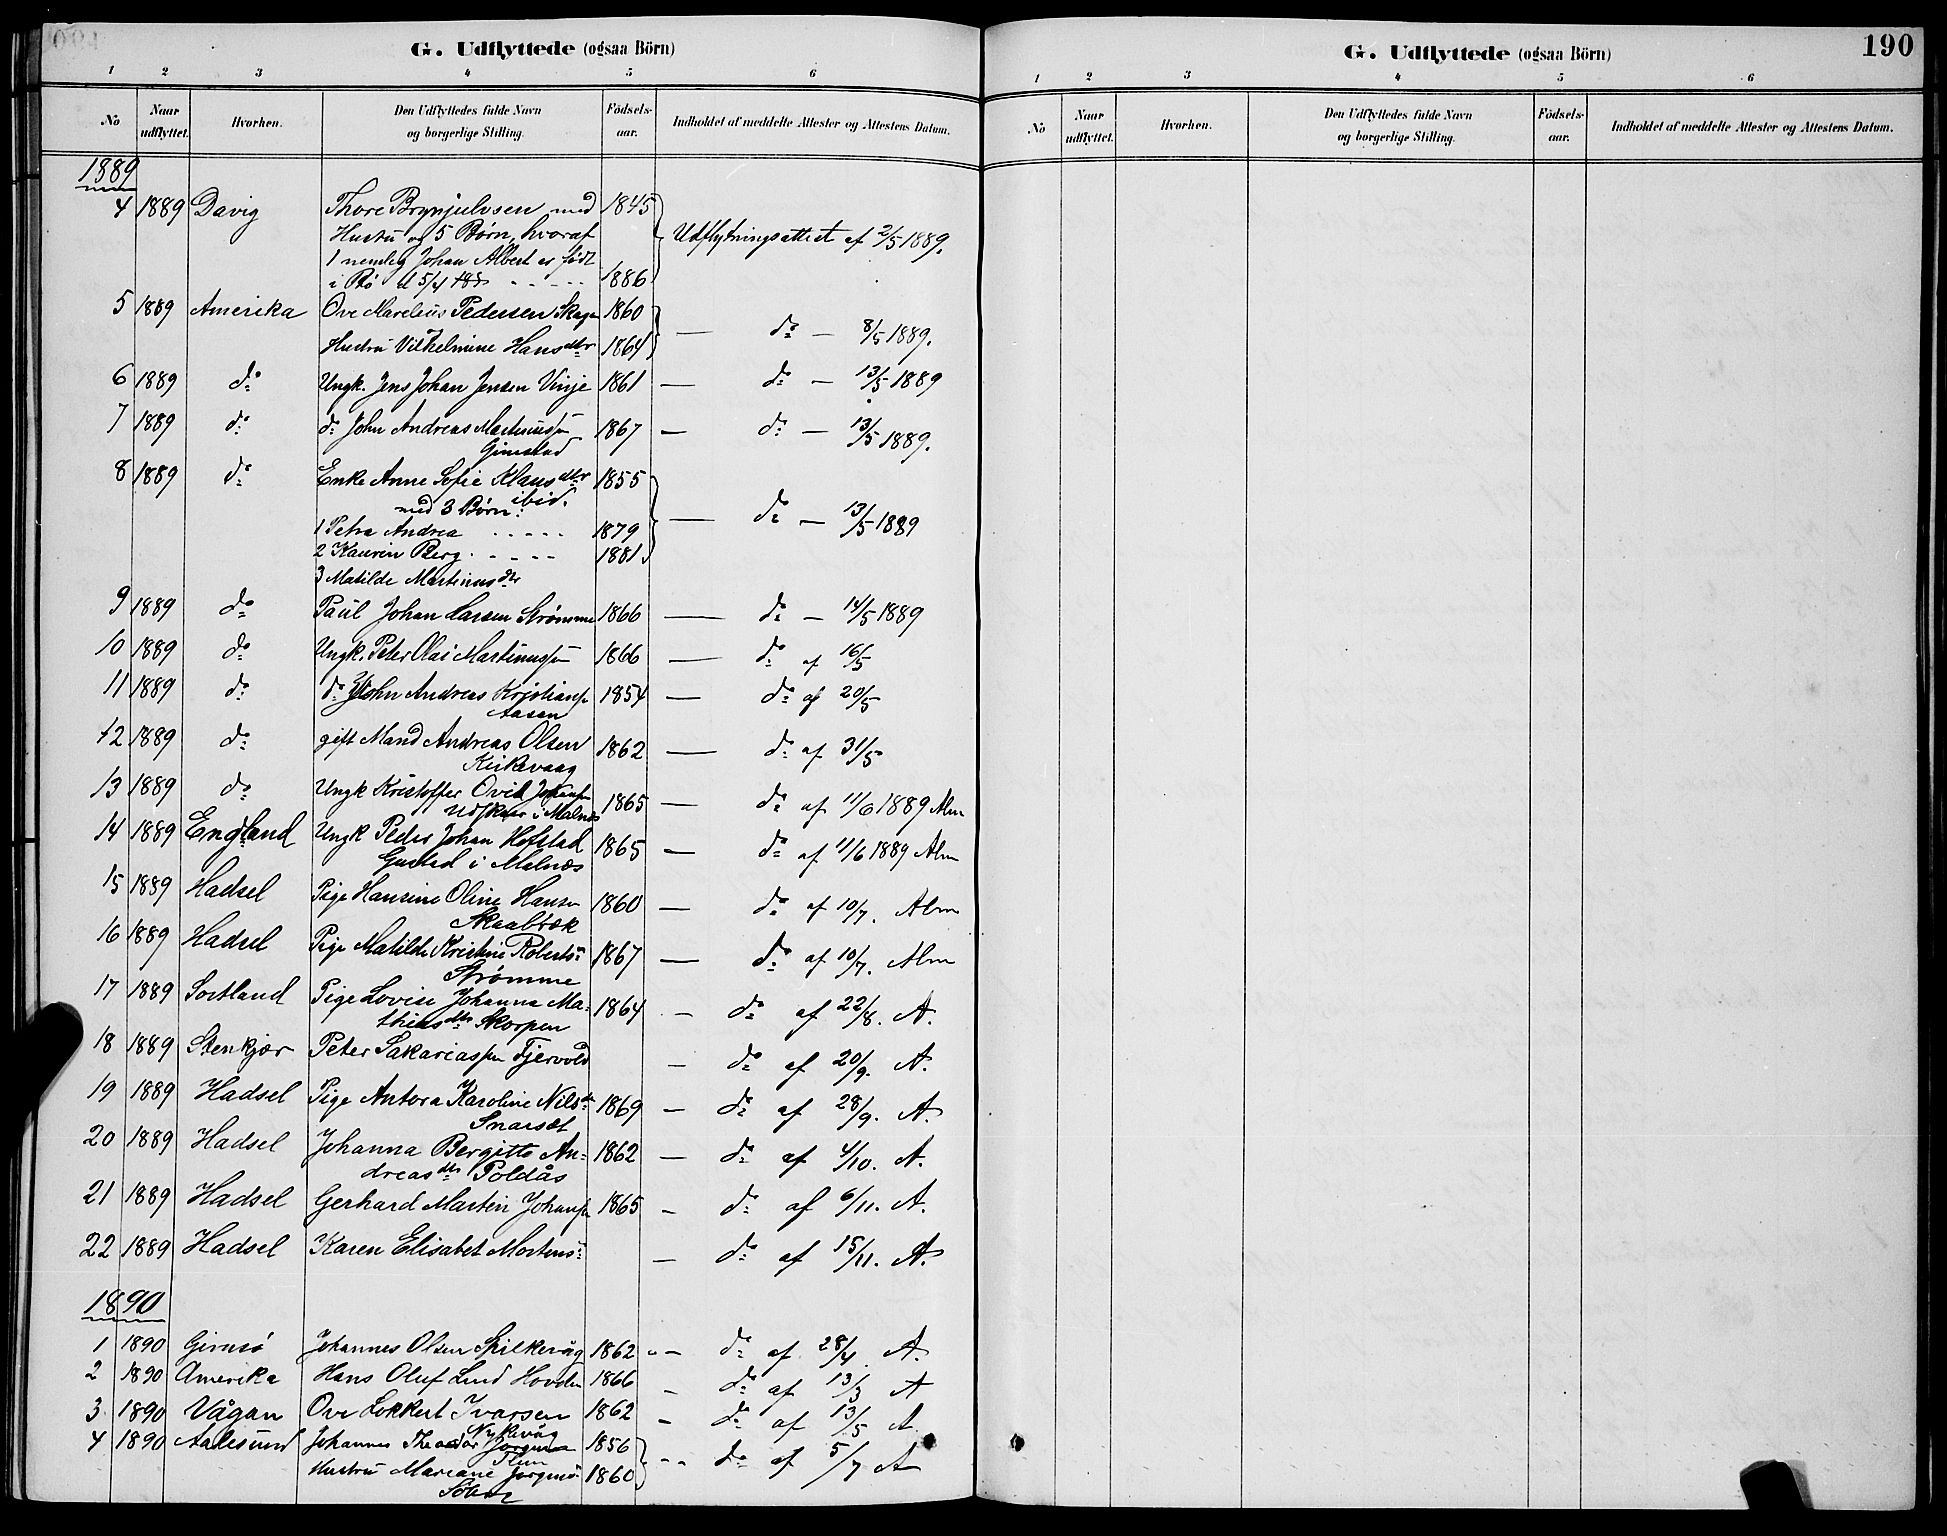 G. Udflyttede (ogsaa Börn)
1 2 3 4 5 6
No Naar udflyttet. Hvorhen. Den Udflyttedes fulde Navn og borgerlige Stilling. Födsels-aar. Indholdet af meddelte Attester og Attestens Datum.
1889
4 1889 Davig Thore Brynjulvsen med 1845
Hustru og 5 Børn, hvoraf Udflytningsattest af 2/5 1889.
1 nemlig Johan Albert er født
i Bø d 5/4 188 - - - - - 1886
5 1889 Amerika Ove Marelius Pedersen Skagen 1860
Hustru Vilhelmine Hansdtr 1864 — do — 8/5 1889.
6 1889 do Ungk. Jens Johan Jensen Vinje 1861 — do — 13/5 1889
7 1889 do do John Andreas Martinussen 1867 — do — 13/5 1889.
Gimstad
8 1889 do Enke Anne Sofie Klausdtr 1855
med 3 Børn: ibid. — do — 13/5 1889
1 Petra Andrea - - - - - 1879
2 Kaurin Berg - - - - 1881
3 Matilde Martinusdtr
9 1889 do Paul Johan Larsen Strømme 1866 — do — 14/5 1889
10 1889 do Ungk. Peter Olai Martinussen 1866 — do af 16/5
11 1889 do do John Andreas Kristians. 1854 — do af 20/5
Aasen
12 1889 do gift Mand Andreas Olsen 1862 — do af 31/5
Kirkevaag
13 1889 do Ungk Kristoffer Ovid Johansen 1865 — do af 11/6 1889 Alm
i Malnes
14 1889 England Ungk Peder Johan Hofstad 1865 — do af 11/6 1889 Alm
Gustad i Malnæs
15 1889 Hadsel Pige Hansine Oline Hansen 1860 — do af 10/7. Alm
Skaabræk
16 1889 Hadsel Pige Matilde Kristine Roberts: 1867 — do af 10/7. Alm
Strømme
17 1889 Sortland Pige Lovise Johanna Ma- 1864 - do af 22/8. A.
thiasdtr Skorpen
18 1889 Stenkjær Peter Sakariassen Fjervold - do af 20/9. A.
19 1889 Hadsel Pige Antora Karoline Nilsd: 1869 - do af 28/9. A.
Snarset
20 1889 Hadsel Johanna Bergitte An- 1862 — do af 4/10. A.
dreasdtr Poldås
21 1889 Hadsel Gerhard Martin Johansen 1865 - do af 6/11. A.
22 1889 Hadsel Karen Elisabet Mortens: — do af 15/11. A.
1890
1 1890 Gimsø Johannes Olsen Spilkevåg 1862 - do af 28/4. A.
2 1890 Amerika Hans Oluf Lind Hovden 1866 - do af 13/3 A
3 1890 Vågan Ove Lokkert Ivarsen 1862 - do af 13/5 A
Nykvåg
4 1890 Aalesund Johannes Theodor 1856 - - do af 5/7 A
Hustru Mariane Jørgens: 1860
G. Udflyttede (ogsaa Börn) 190
1 2 3 4 5 6
No Naar udflyttet. Hvorhen. Den Udflyttedes fulde Navn og borgerlige Stilling. Födsels-aar. Indholdet af meddelte Attester og Attestens Datum.